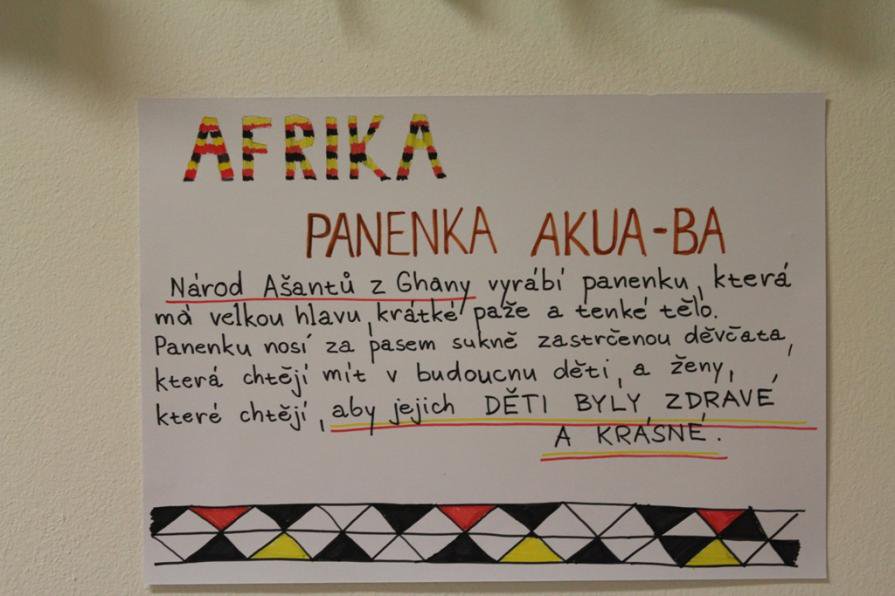 AFRIKA
PANENKA AKUA-BA
Národ Ašantů z Ghany vyrábí panenku, která
má velkou hlavu, krátké paže a tenké tělo.
Panenku nosí za pasem sukně zastrčenou děvčata,
která chtějí mít v budoucnu děti, a ženy,
které chtějí, aby jejich DĚTI BYLY ZDRAVÉ
A KRÁSNÉ.